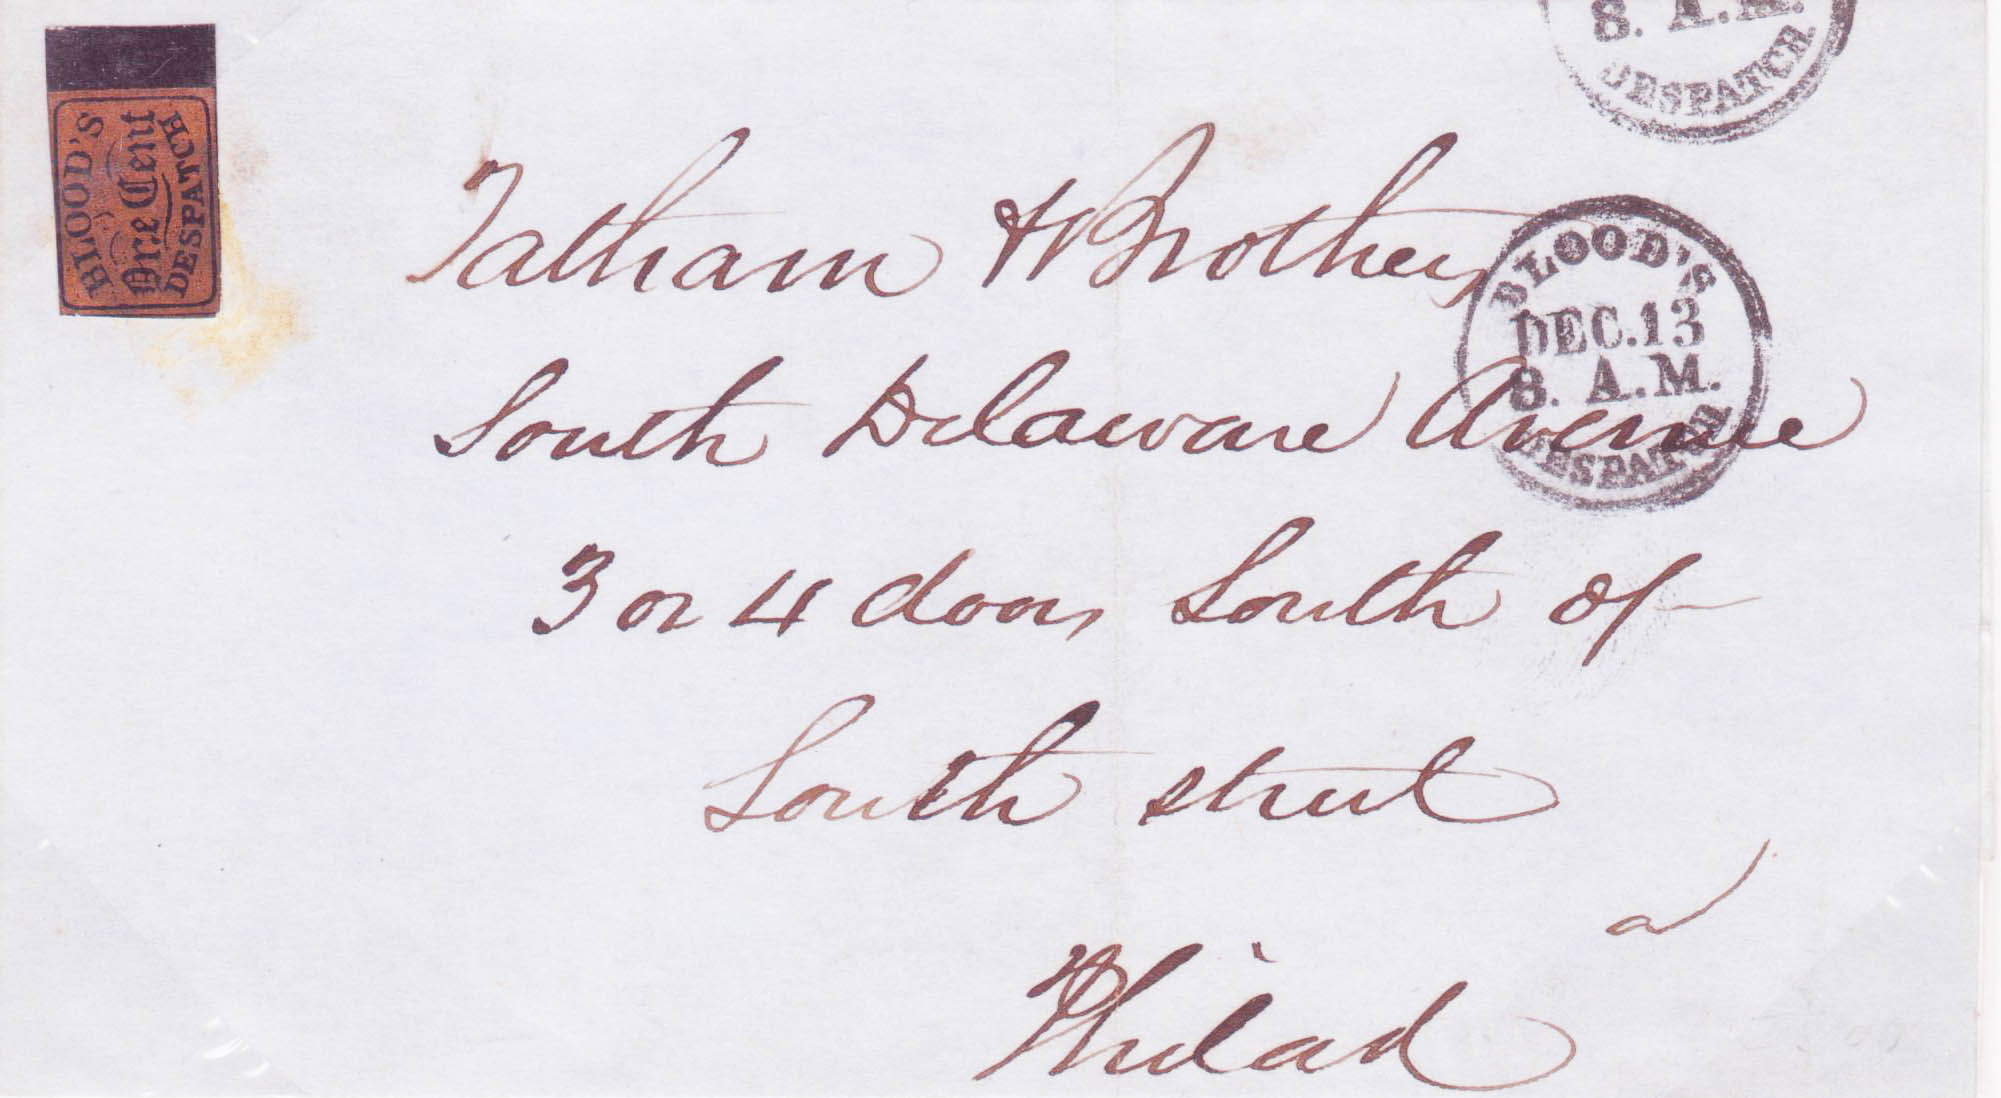 BLOOD'S
One Cent
DESPATCH
8. A.M.
DESPATCH.
Tatham & Brothers
BLOOD'S
DEC. 13
8. A.M.
DESPATCH
South Delaware Avenue
3 or 4 doors South of
South street
Philad<sup>a</sup>